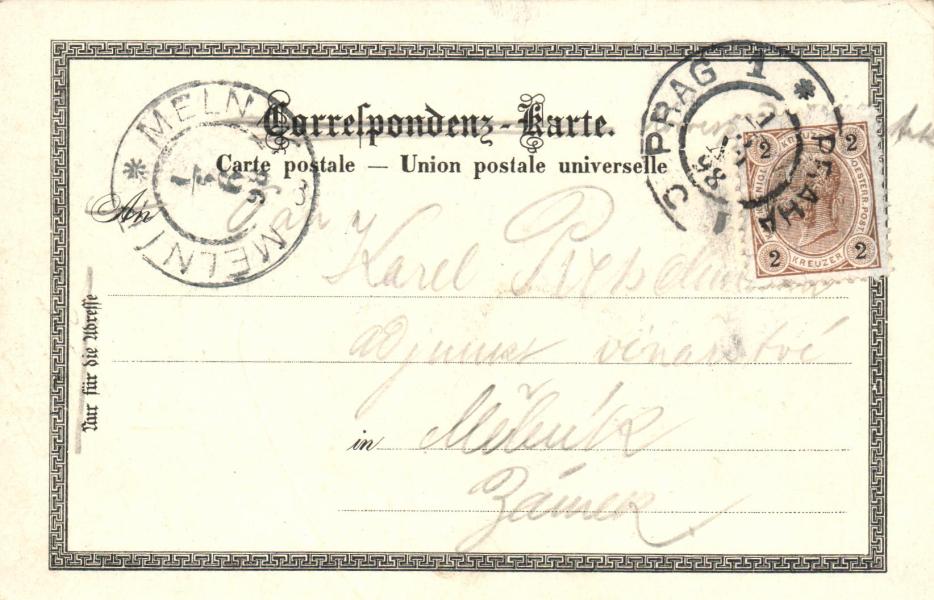 Correspondenz-Karte.
Carte postale — Union postale universelle
MELNIK
MELNIK
PRAG 1
PRAHA
2 KREUZER 2
OESTERR. POST
2 KREUZER 2
An Pan
Karel
adjunct vinařství
in Mělník
Zámek
Nur für die Adresse